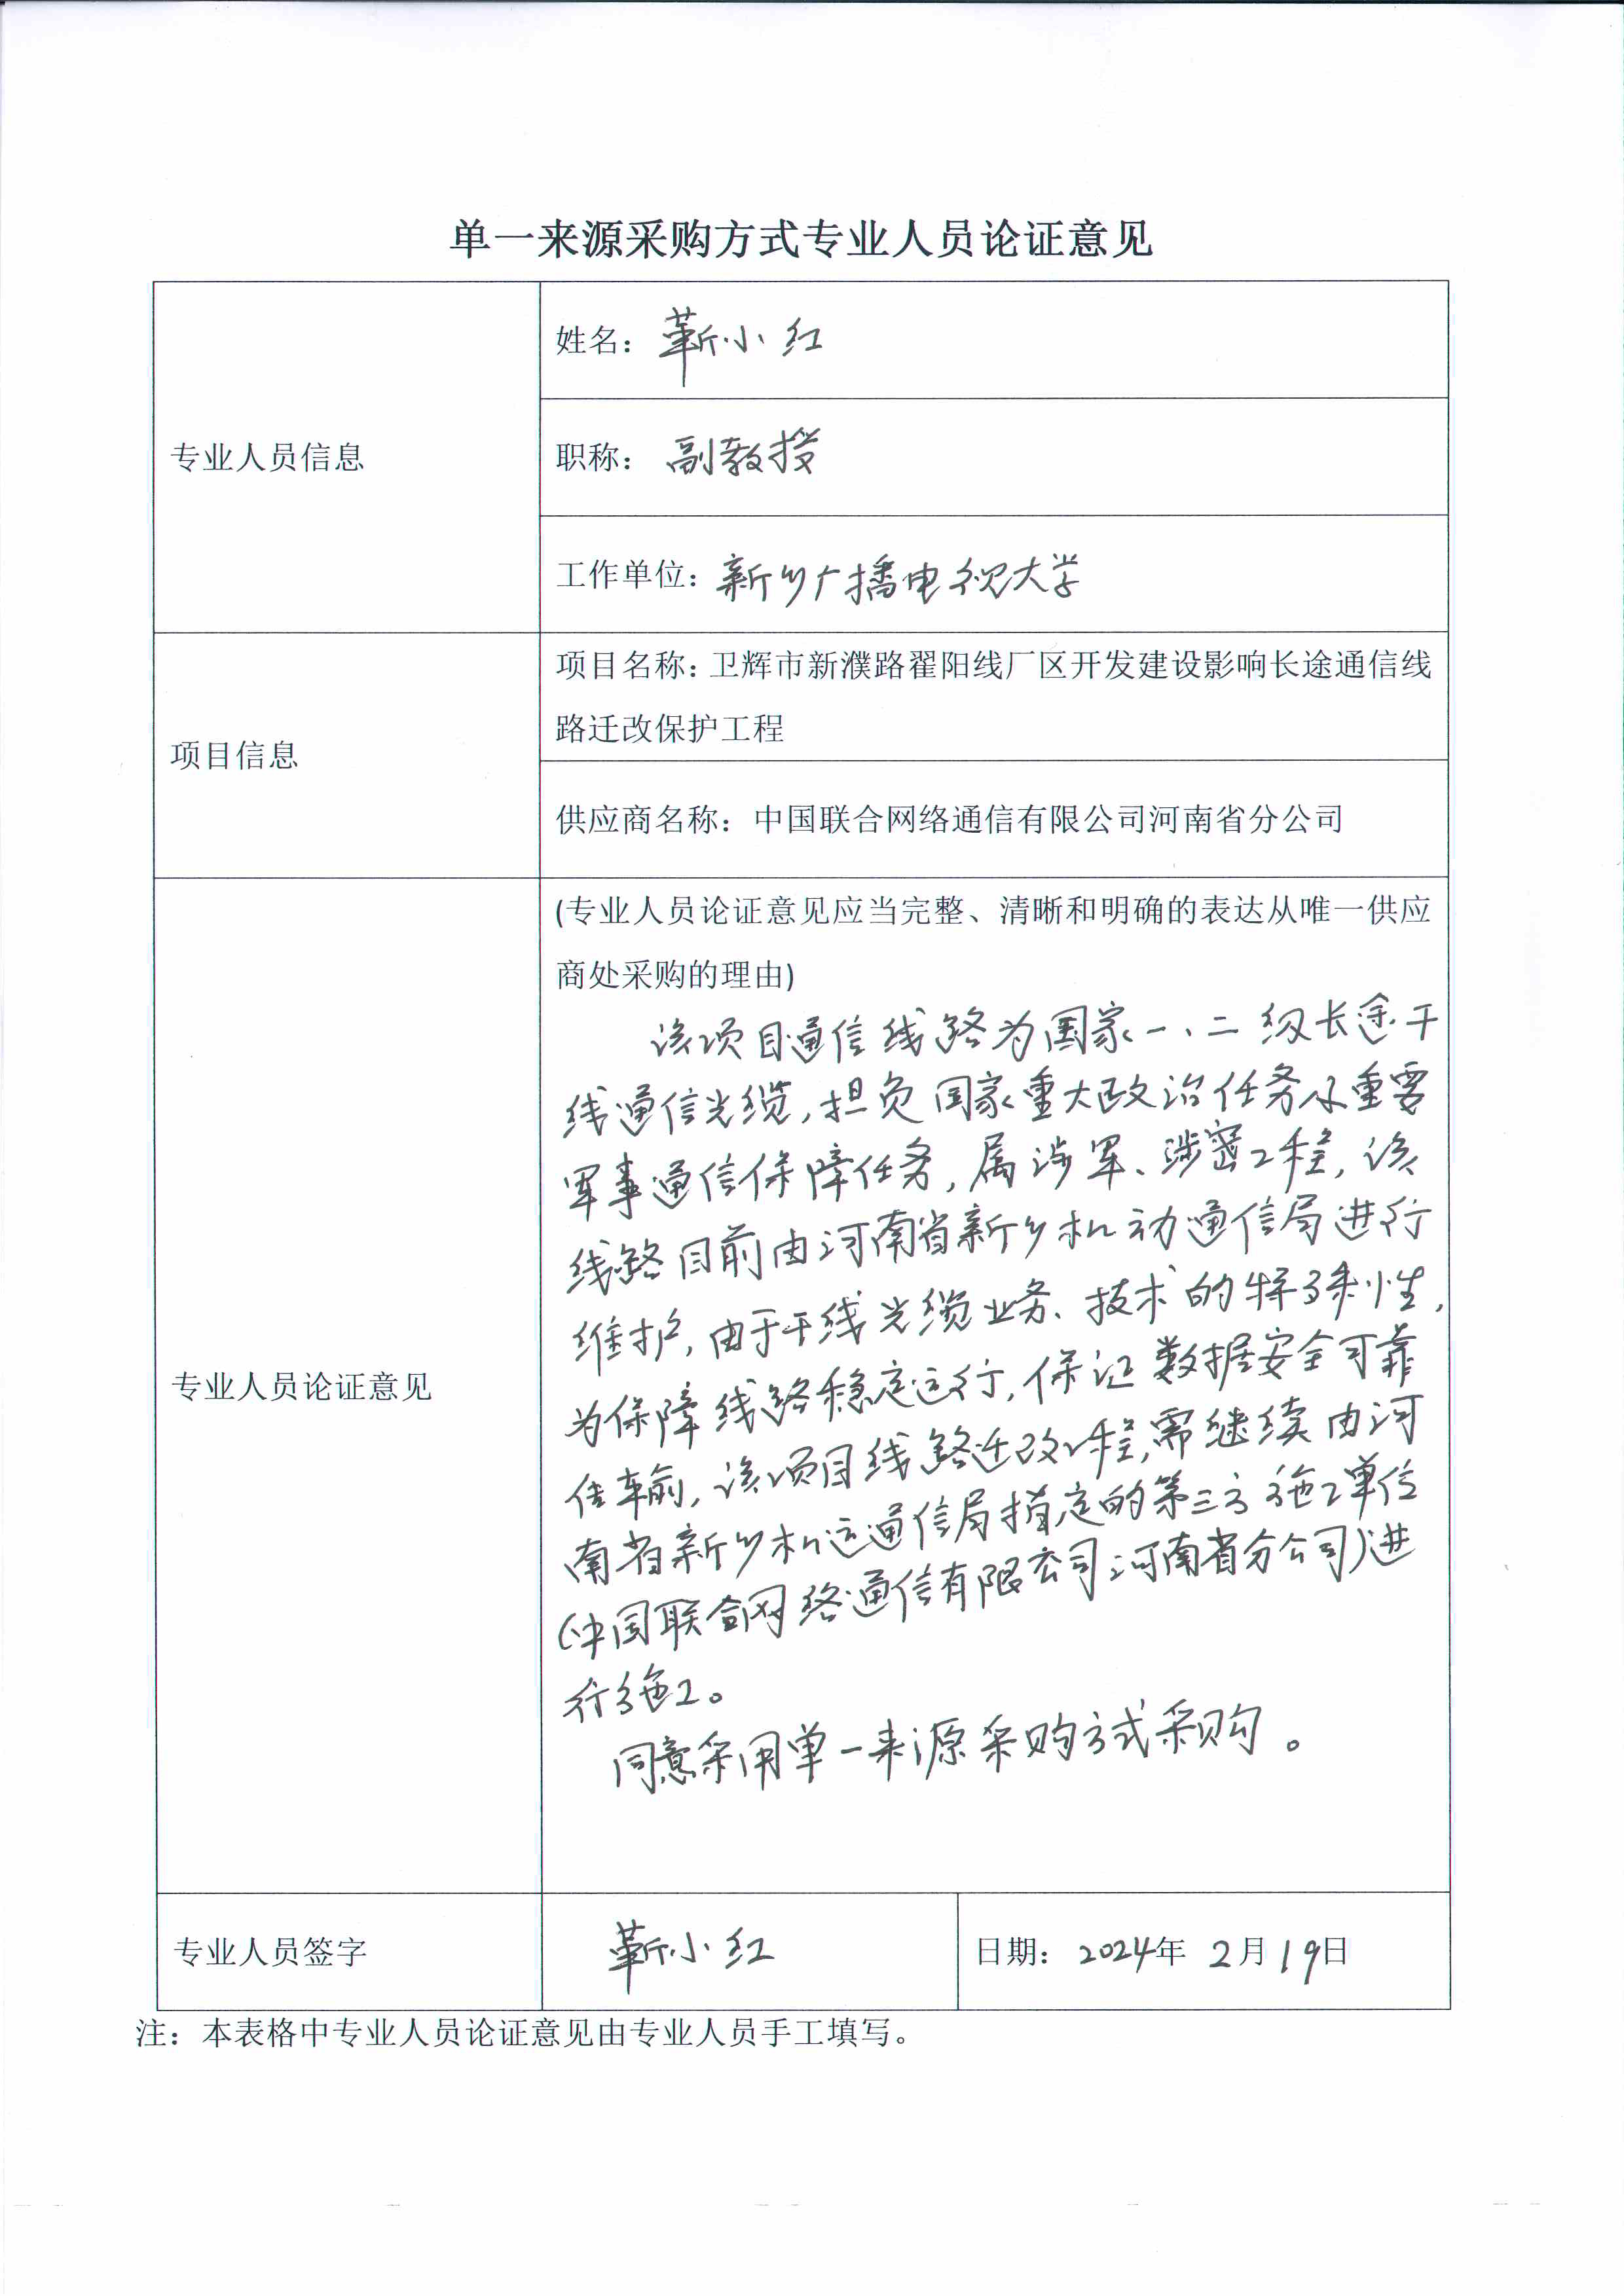 单一来源采购方式专业人员论证意见
专业人员信息
姓名：靳小红
职称：副教授
工作单位：新乡广播电视大学
项目信息
项目名称：卫辉市新濮路翟阳线厂区开发建设影响长途通信线
路迁改保护工程
供应商名称：中国联合网络通信有限公司河南省分公司
专业人员论证意见
(专业人员论证意见应当完整、清晰和明确的表达从唯一供应
商处采购的理由)
该项目通信线路为国家一、二级长途干
线通信光缆,担负国家重大政治任务及重要
军事通信保障任务,属涉军、涉密工程,该
线路目前由河南省新乡机动通信局进行
维护,由于干线光缆业务、技术的特殊性,
为保障线路稳定运行,保证数据安全可靠
传输,该项目线路迁改工程,需继续由河
南省新乡机动通信局指定的第三方施工单位
(中国联合网络通信有限公司河南省分公司)进
行施工。
同意采用单一来源采购方式采购。
专业人员签字
靳小红
日期：2024年 2月19日
注：本表格中专业人员论证意见由专业人员手工填写。